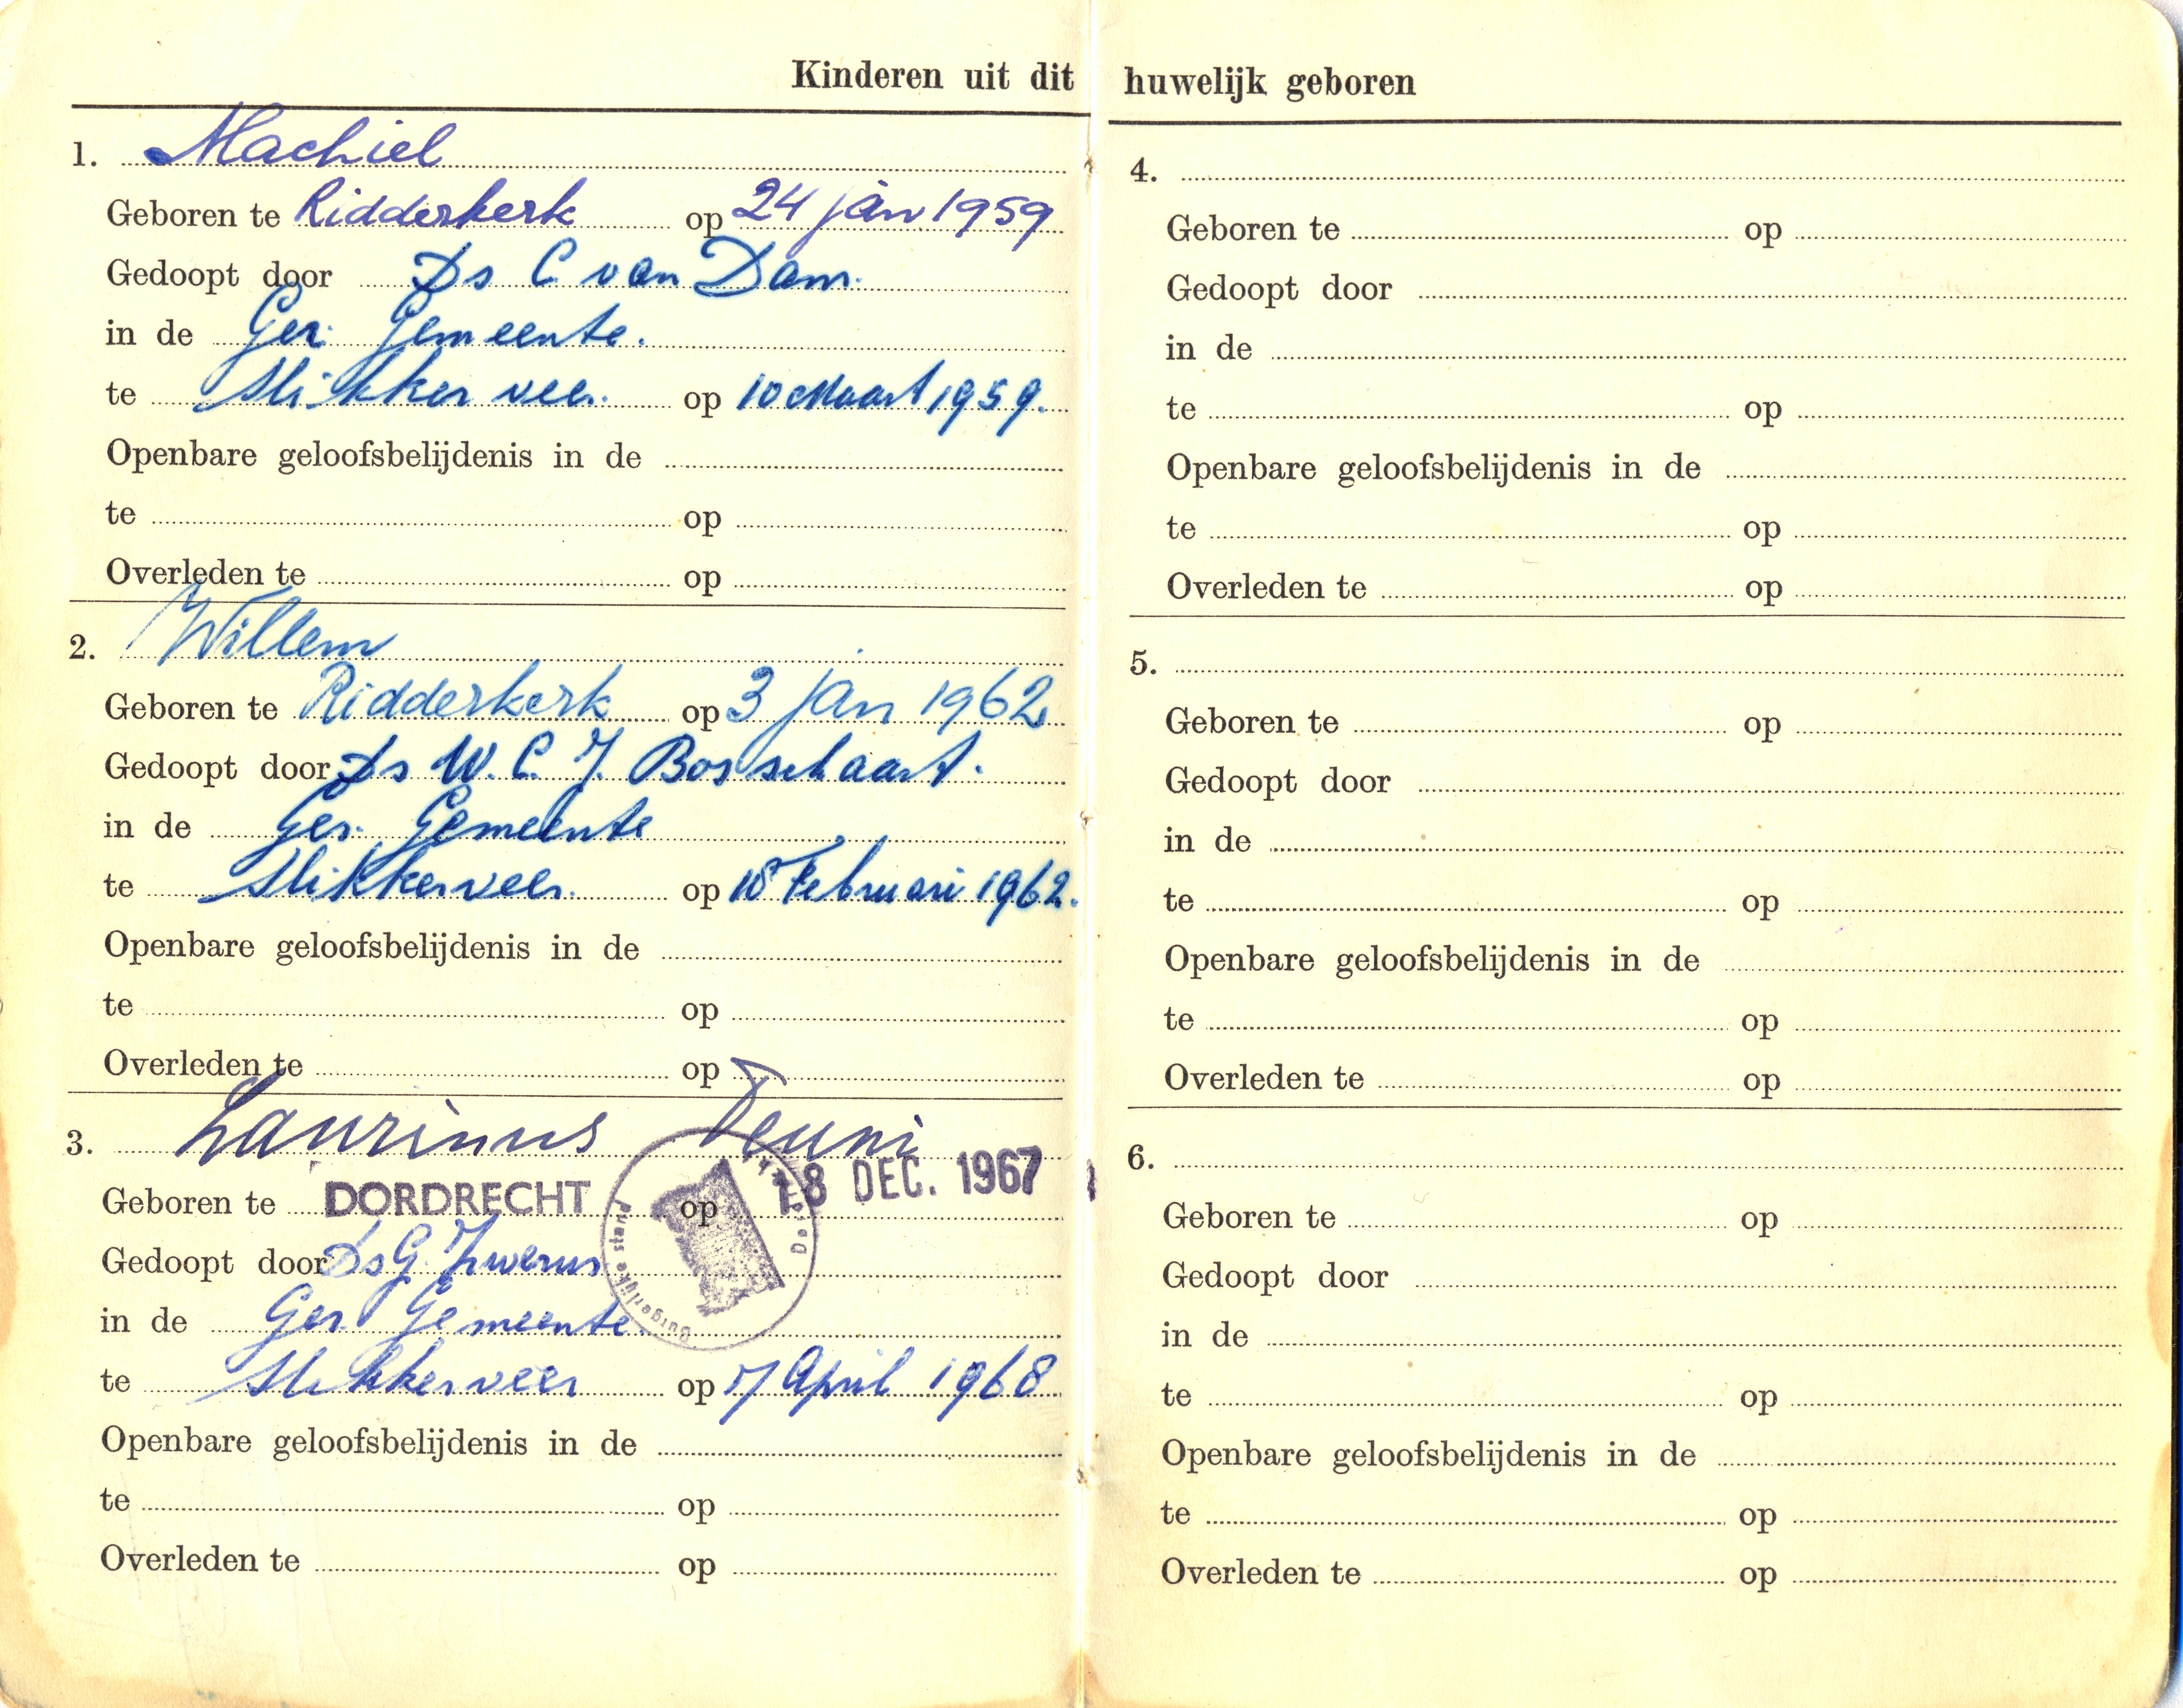 Kinderen uit dit huwelijk geboren
1. Machiel
Geboren te Ridderkerk op 24 jan 1959
Gedoopt door Ds C van Dam.
in de Ger. Gemeente.
te Slikkerveer. op 10 Maart 1959.
Openbare geloofsbelijdenis in de
te op
Overleden te op
2. Willem
Geboren te Ridderkerk op 3 jan 1962
Gedoopt door Ds W. C. J. Bosschaart.
in de Ger. Gemeente
te Slikkerveer. op Februari 1962.
Openbare geloofsbelijdenis in de
te op
Overleden te op
3. Laurinus Teuni
Geboren te DORDRECHT op 18 DEC. 1967
Burgerlijke stand
Gedoopt door Ds G. Zwerus
in de Ger. Gemeente.
te Slikkerveer op 7 April 1968
Openbare geloofsbelijdenis in de
te op
Overleden te op
4.
Geboren te op
Gedoopt door
in de
te op
Openbare geloofsbelijdenis in de
te op
Overleden te op
5.
Geboren te op
Gedoopt door
in de
te op
Openbare geloofsbelijdenis in de
te op
Overleden te op
6.
Geboren te op
Gedoopt door
in de
te op
Openbare geloofsbelijdenis in de
te op
Overleden te op